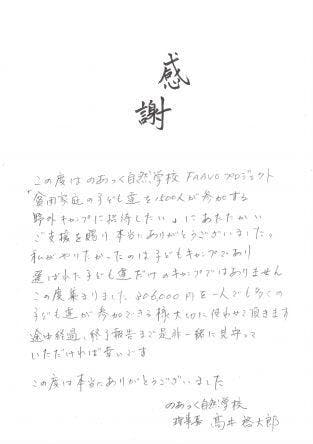 感
謝
この度はのあっく自然学校 FAAVO プロジェクト
「貧困家庭の子ども達を1500人が参加する
野外キャンプに招待したい」にあたたかい
ご支援を賜り本当にありがとうございました。
私がやりたかったのは子どもキャンプであり
選ばれた子ども達だけのキャンプではありません
この度集まりました、206,000円を一人でも多くの
子ども達が参加できる様大切に使わせて頂きます
途中経過、終了報告まで是非一緒に見守って
いただければ幸いです
この度は本当にありがとうございました
のあっく自然学校
理事長 高井啓太郎